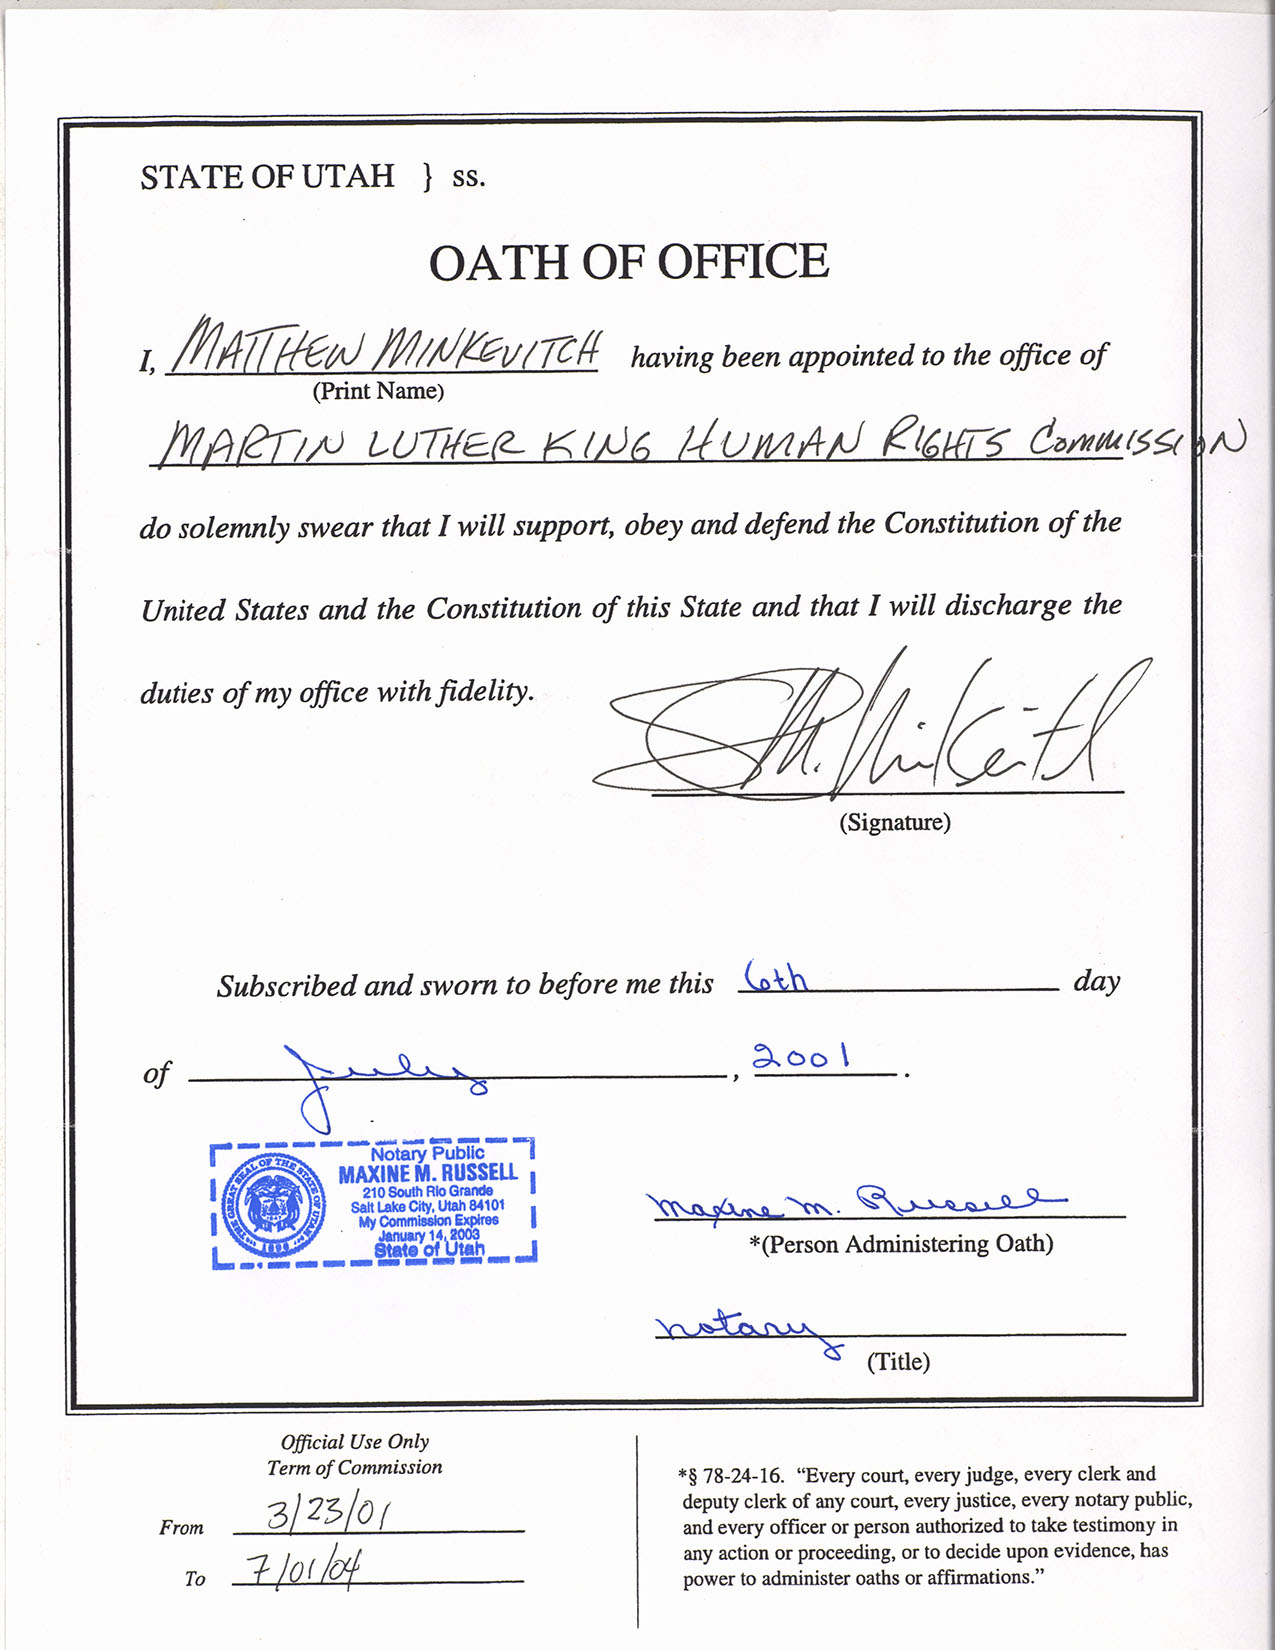 STATE OF UTAH } ss.
OATH OF OFFICE
I, MATTHEW MINKEVITCH having been appointed to the office of
(Print Name)
MARTIN LUTHER KING HUMAN RIGHTS COMMISSION
do solemnly swear that I will support, obey and defend the Constitution of the
United States and the Constitution of this State and that I will discharge the
duties of my office with fidelity.
(Signature)
Subscribed and sworn to before me this 6th day
of July, 2001.
Notary Public
MAXINE M. RUSSELL
210 South Rio Grande
Salt Lake City, Utah 84101
My Commission Expires
January 14, 2003
State of Utah
THE GREAT SEAL OF THE STATE OF UTAH
1896
Maxine M. Russell
*(Person Administering Oath)
notary
(Title)
Official Use Only
Term of Commission
From 3/23/01
To 7/01/04
*§ 78-24-16. “Every court, every judge, every clerk and
deputy clerk of any court, every justice, every notary public,
and every officer or person authorized to take testimony in
any action or proceeding, or to decide upon evidence, has
power to administer oaths or affirmations.”